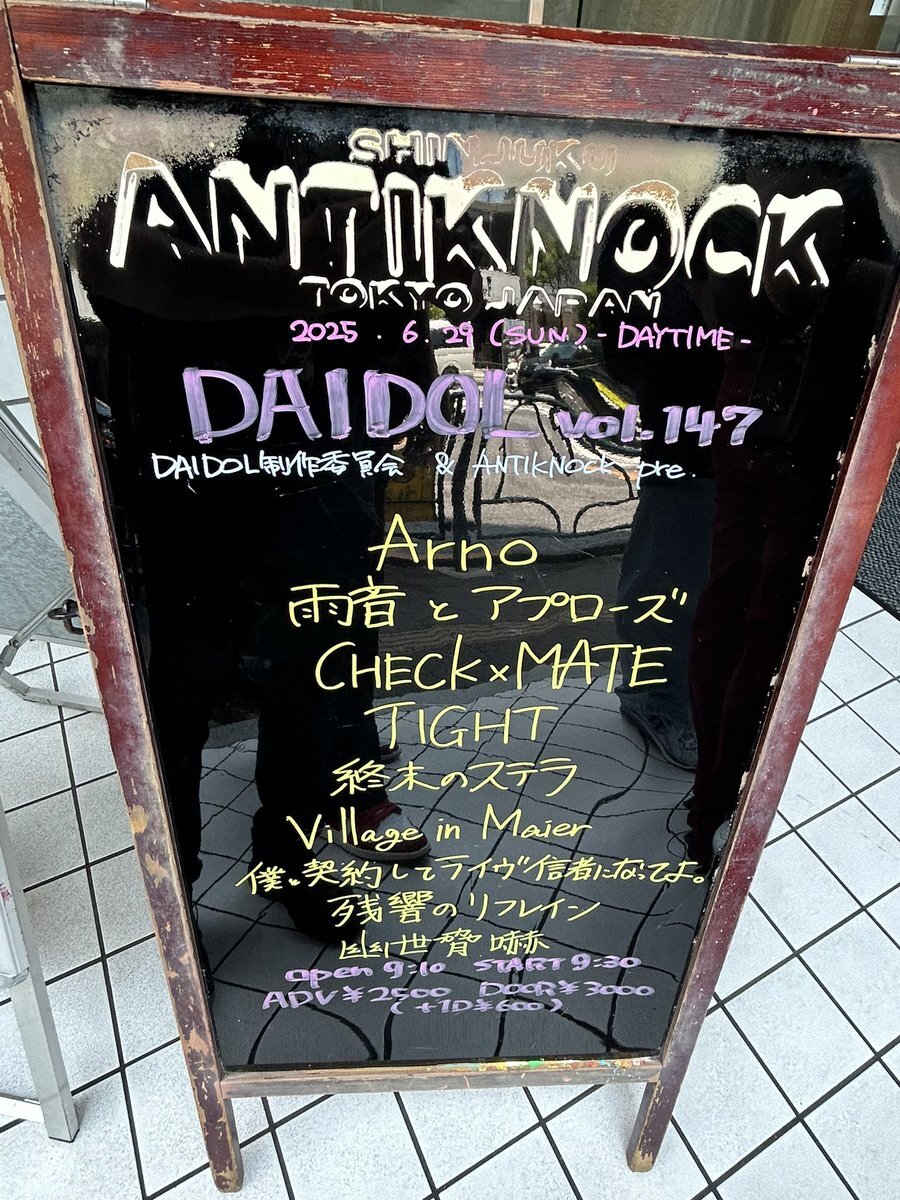 SHINJUKU
ANTIKNOCK
TOKYO JAPAN
2025.6.29(SUN)-DAYTIME-
DAIDOL vol.147
DAIDOL制作委員会 & ANTIKNOCK pre.
Arno
雨音とアプローズ
CHECK×MATE
TIGHT
終末のステラ
Village in Maier
僕、契約してライヴ信者になってよ。
残響のリフレイン
幽世脅嚇
open 9:10 START 9:30
ADV¥2500 DOOR¥3000
(+1D¥600)